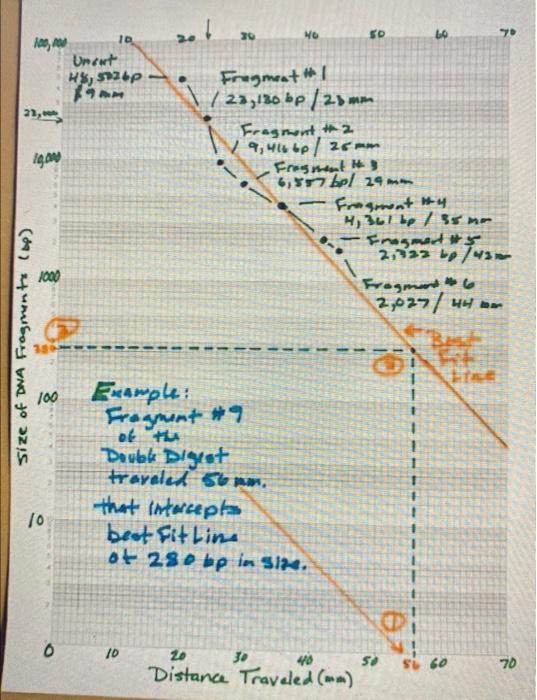 10 20 30 40 50 60 70
100,000
Uncut
48,502 bp
19 mm
Fragment #1
23,130 bp / 23 mm
23,000
Fragment #2
9,416 bp / 25 mm
10,000
Fragment #3
6,557 bp / 29 mm
Fragment #4
4,361 bp / 35 mm
Fragment #5
2,322 bp / 42 mm
Fragment #6
2,027 / 44 mm
1000
Size of DNA Fragments (bp)
2
280
Best
Fit
Line
3
100
Example:
Fragment #9
of the
Double Digest
traveled 56 mm.
that intercepts
best Fit Line
at 280 bp in size.
10
1
0 10 20 30 40 50 56 60 70
Distance Traveled (mm)